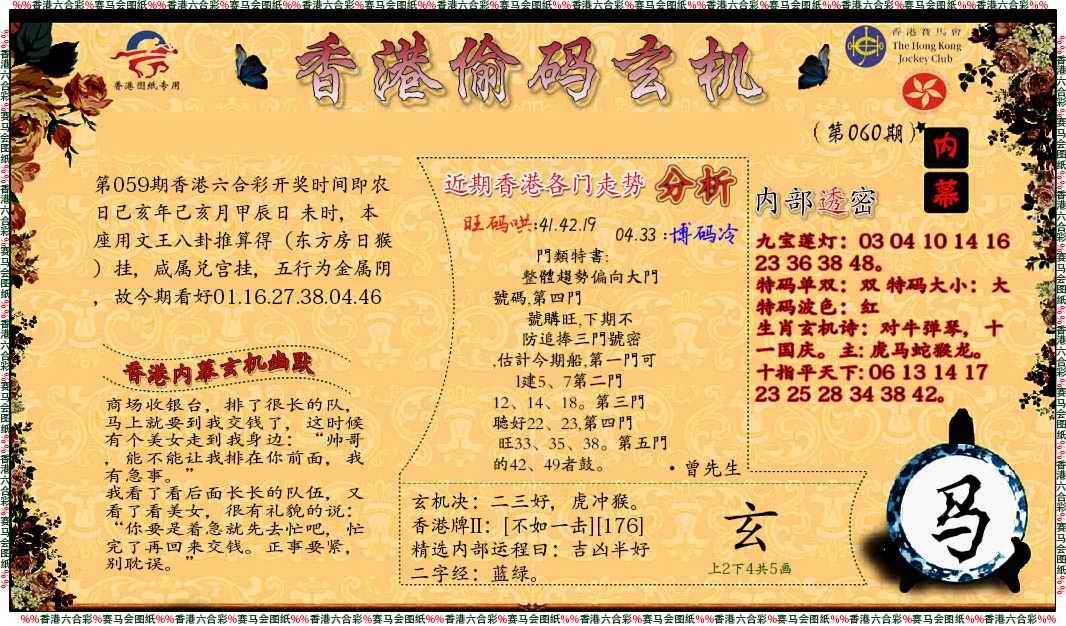 %%香港六合彩%赛马会图纸%%香港六合彩%赛马会图纸%%香港六合彩%赛马会图纸%%香港六合彩%赛马会图纸%%香港六合彩%赛马会图纸%%香港六合彩%赛马会图纸%%香港六合彩%%
香港图纸专用
香港偷码玄机
香港賽馬會
The Hong Kong
Jockey Club
(第060期)
内
幕
第059期香港六合彩开奖时间即农
日己亥年己亥月甲辰日 未时，本
座用文王八卦推算得（东方房日猴
）挂，咸属兑宫挂，五行为金属阴
，故今期看好01.16.27.38.04.46
香港内幕玄机幽默
商场收银台，排了很长的队，
马上就要到我交钱了，这时候
有个美女走到我身边：“帅哥
，能不能让我排在你前面，我
有急事。”
我看了看后面长长的队伍，又
看了看美女，很有礼貌的说：
“你要是着急就先去忙吧，忙
完了再回来交钱。正事要紧，
别耽误。”
近期香港各门走势 分析
旺码哄:41.42.19
04.33 :博码冷
門類特書:
整體趨勢偏向大門
號碼,第四門
號購旺,下期不
防追捧三門號密
,估計今期船,第一門可
1建5、7第二門
12、14、18。第三門
聽好22、23,第四門
旺33、35、38。第五門
的42、49者鼓。
•曾先生
玄机决：二三好，虎冲猴。
香港牌II：[不如一击][176]
精选内部运程曰：吉凶半好
二字经：蓝绿。
玄
上2下4共5画
内部透密
九宝莲灯：03 04 10 14 16
23 36 38 48。
特码单双：双 特码大小：大
特码波色：红
生肖玄机诗：对牛弹琴，十
一国庆。主: 虎马蛇猴龙。
十指平天下: 06 13 14 17
23 25 28 34 38 42。
马
%%香港六合彩%赛马会图纸%%香港六合彩%赛马会图纸%%香港六合彩%赛马会图纸%%香港六合彩%赛马会图纸%%香港六合彩%赛马会图纸%%香港六合彩%赛马会图纸%%香港六合彩%%